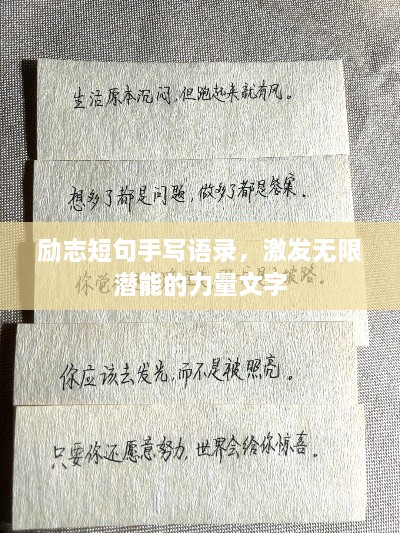 生活原本沉闷，但跑起来就有风。
想多了都是问题，做多了都是答案。
励志短句手写语录，激发无限
潜能的力量文字
你觉 坡路。
你应该去发光，而不是被照亮。
只要你还愿意努力，世界会给你惊喜。